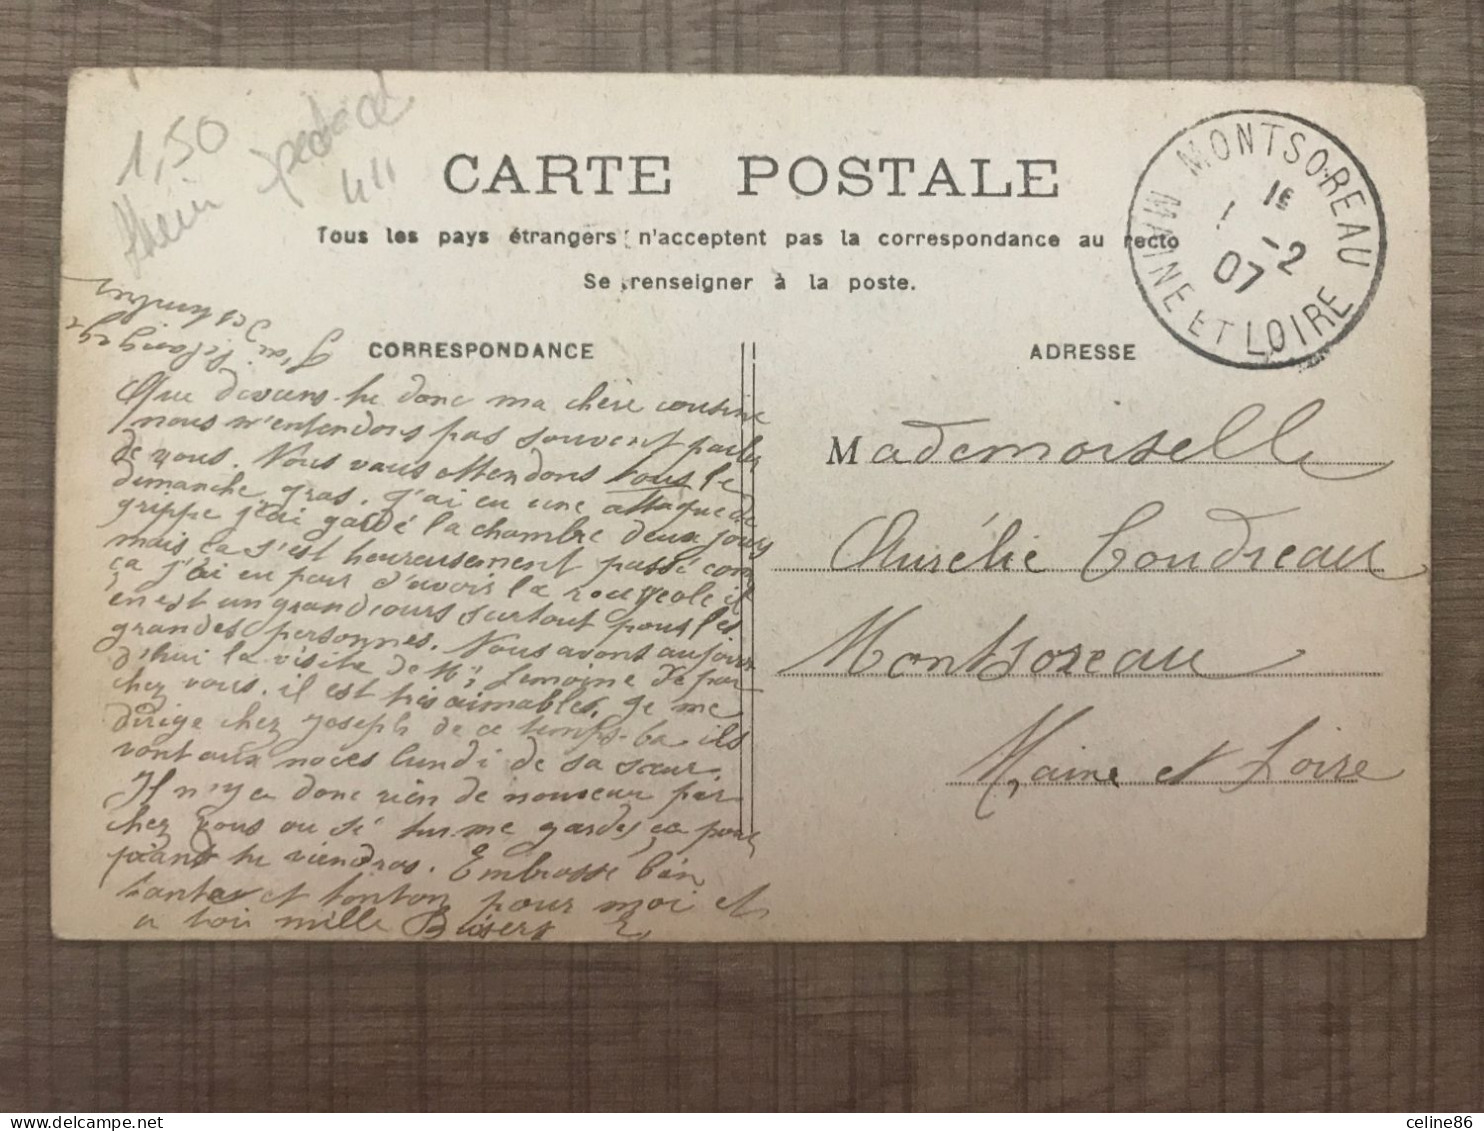 1,50
CARTE POSTALE
Tous les pays étrangers n'acceptent pas la correspondance au recto
Se renseigner à la poste.
MONTSOREAU
MAINE ET LOIRE
1 -2
07
CORRESPONDANCE
ADRESSE
J'ai
Que deviens-tu donc ma chère cousine
nous n'entendons pas souvent parler
de vous. Nous vous attendons tous le
dimanche gras. J'ai eu une attaque de
grippe j'ai gardé la chambre deux jours
mais ca s'est heureusement passé com
ça j'ai eu peur d'avoir la rougeole il
en est un grand cours surtout pour les
grandes personnes. Nous avons aujour
d'hui la visite de Mr Lemoine de par
chez vous. il est très aimables. Je me
dirige chez Joseph de ce temps-la ils
vont aux noces lundi de sa sœur.
Il n'y a donc rien de nouveau par
chez vous ou si tu me gardes ça pour
quand tu viendras. Embrasse bien
tantes et tonton pour moi et
a toi mille Bisers
Mademoiselle
Aurélie Coudreau
Montsoreau
Maine et Loire
celine86